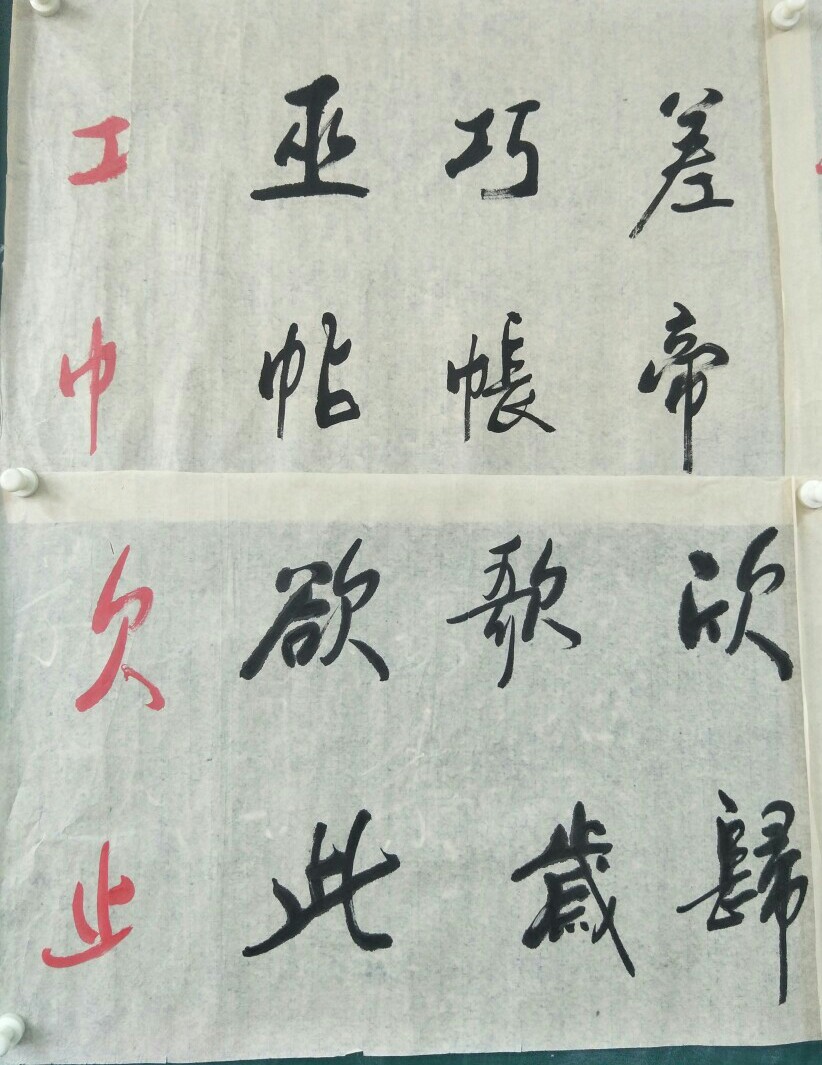 工 巫 巧 差
巾 帖 帳 帝
欠 欲 歌 欣
止 此 歲 歸